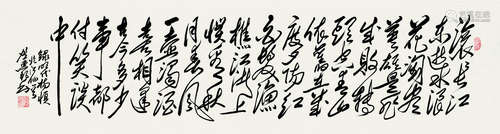 滚滚长江
东逝水浪
花淘尽
英雄是非
成败转
头空青山
依旧在几
度夕阳红
白发渔
樵江渚上
惯看秋
月春风
一壶浊酒
喜相逢
古今多少
事都
付笑谈
中
录明代杨慎
临江仙